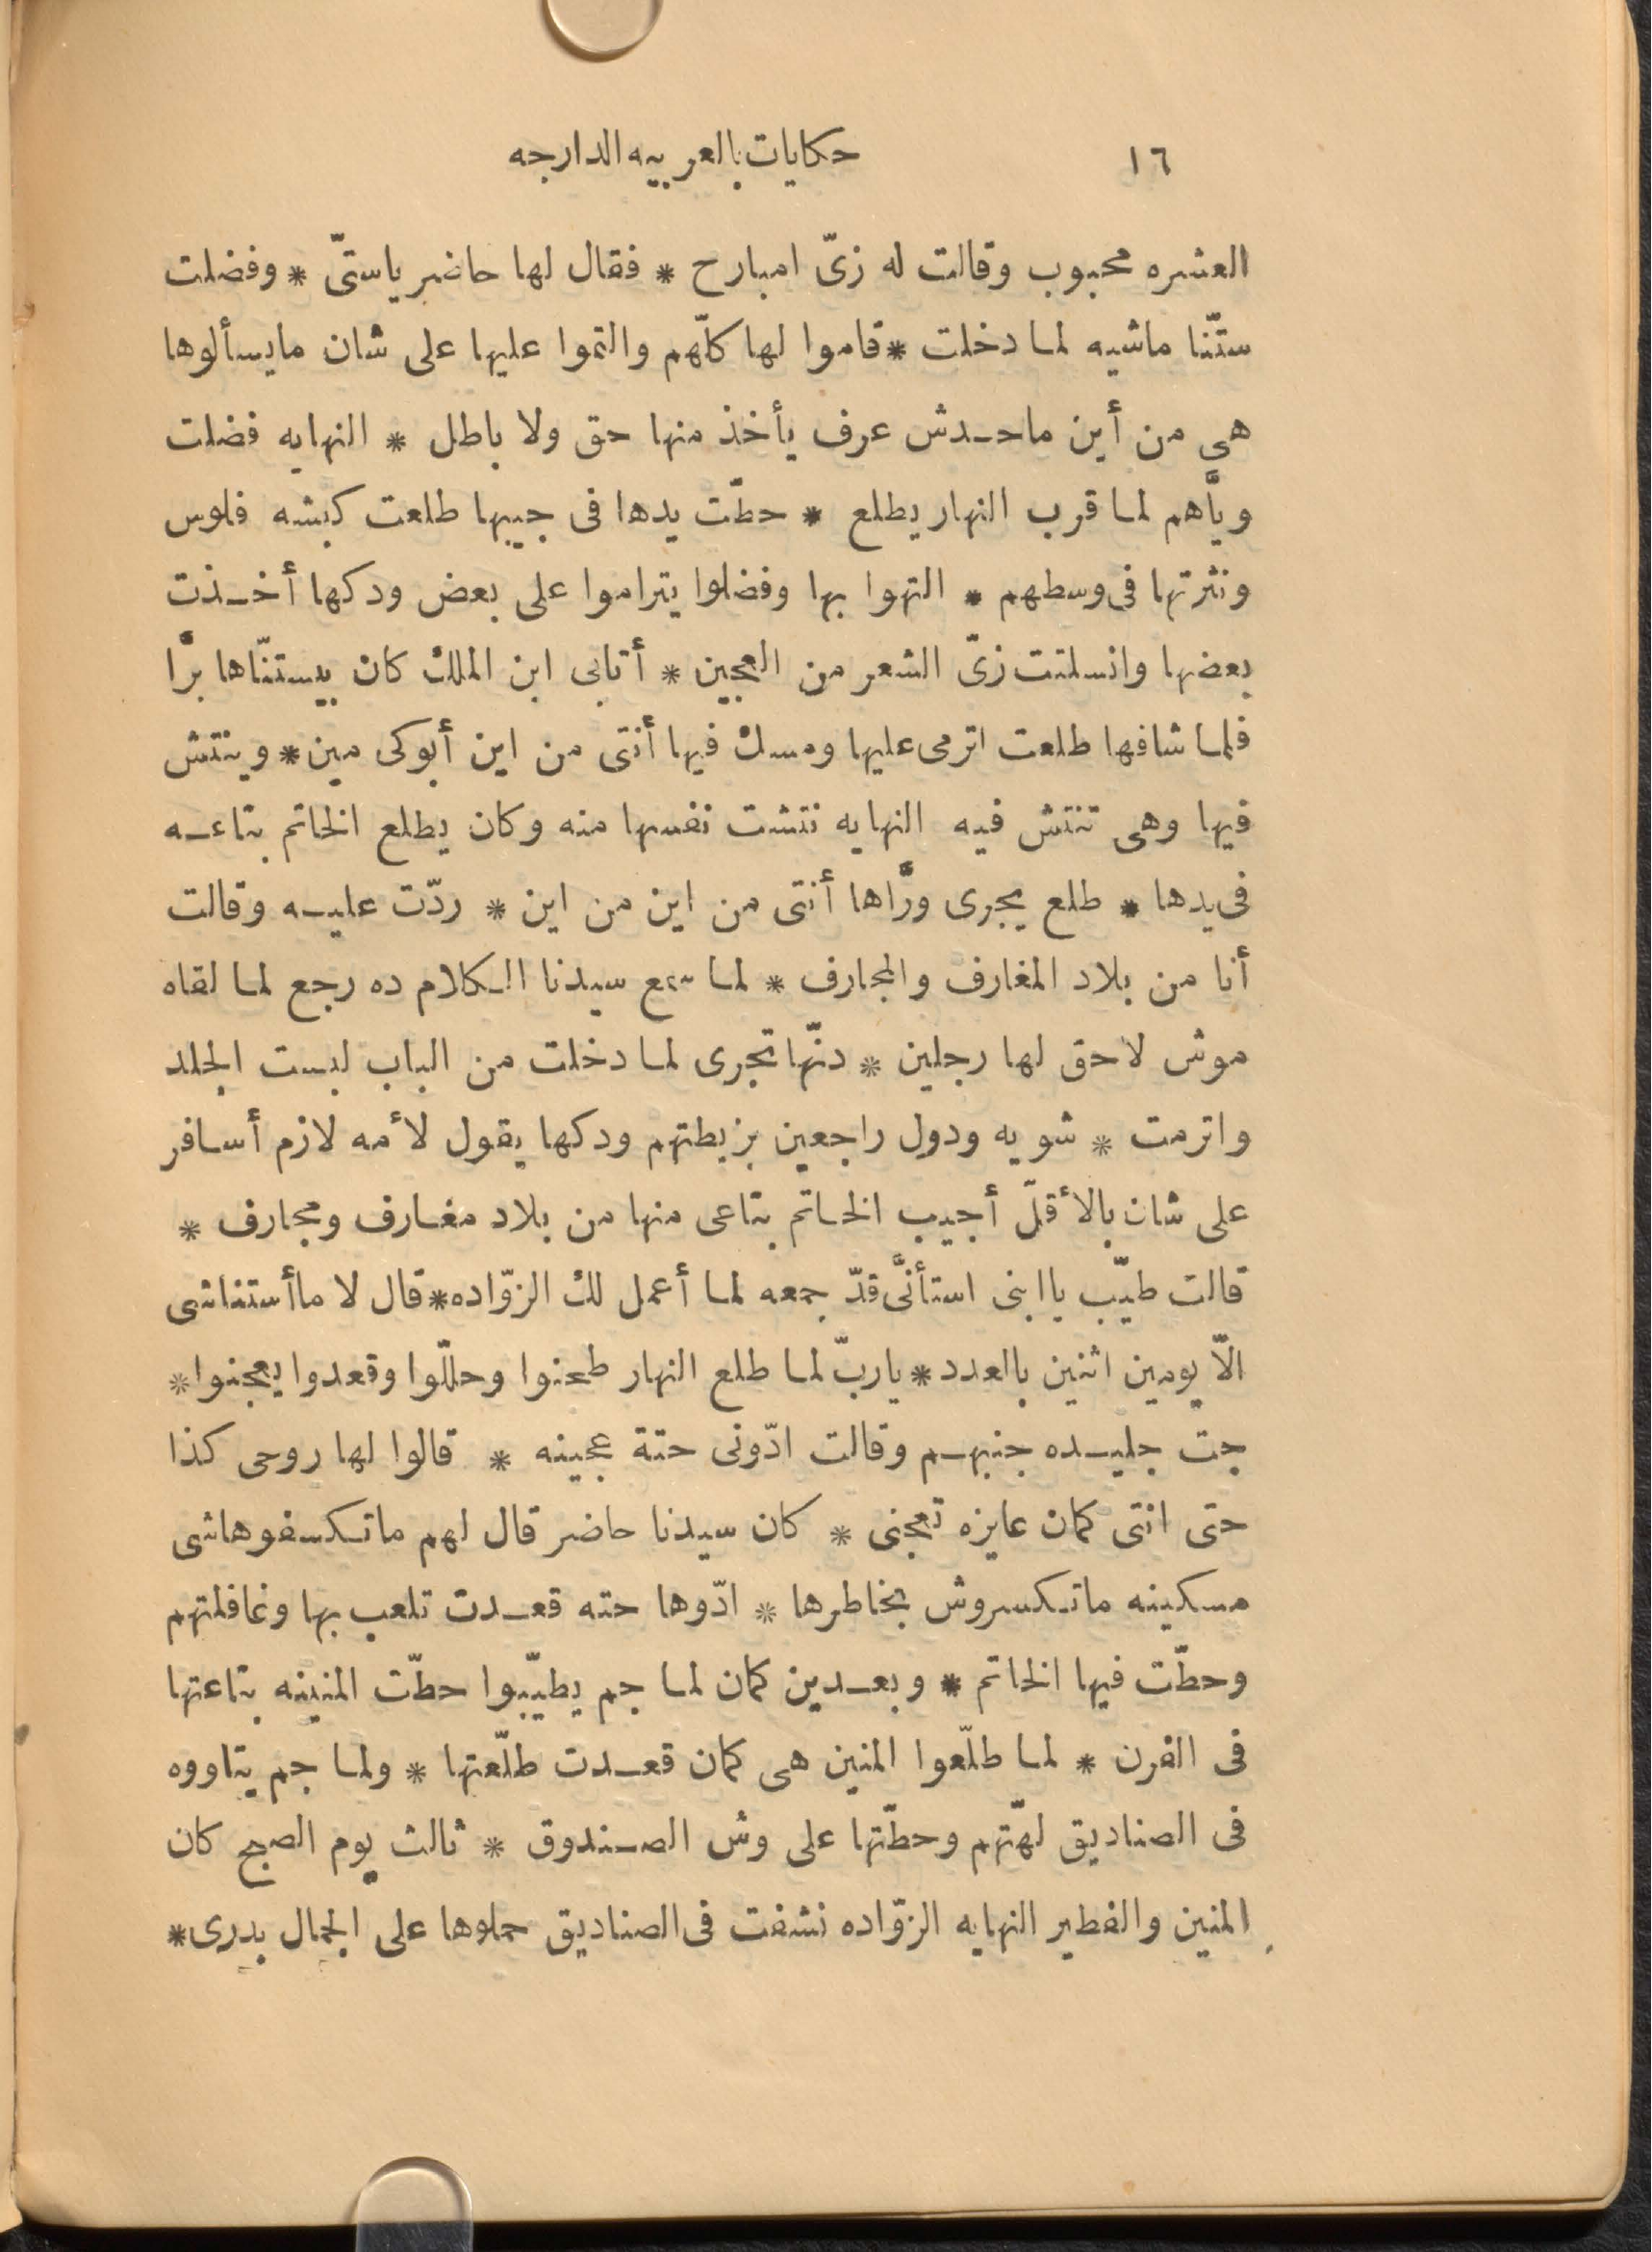 ١٦ حكايات بالعربيه الدارجه
العشره محبوب وقالت له زىّ امبارح * فقال لها حاضر ياستىّ * وفضلت
ستّنا ماشيه لما دخلت * قاموا لها كلّهم والتموا عليها على شان مايسألوها
هى من أين ماحدش عرف يأخذ منها حق ولا باطل * النهايه فضلت
ويَّاهم لما قرب النهار يطلع * حطّت يدها فى جيبها طلعت كبشه فلوس
ونثرتها فى وسطهم * التهوا بها وفضلوا يتراموا على بعض ودكها أخذت
بعضها وانسلتت زىّ الشعر من العجين * أتابى ابن الملك كان بيستنّاها برَّا
فلما شافها طلعت اترمى عليها ومسك فيها أنتى من اين أبوكى مين * وينتش
فيها وهى تنتش فيه النهايه نتشت نفسها منه وكان يطلع الخاتم بتاعه
فى يدها * طلع يجرى ورَّاها أنتى من اين من اين * ردّت عليه وقالت
أنا من بلاد المغارف والمجارف * لما سمع سيدنا الكلام ده رجع لما لقاه
موش لاحق لها رجلين * دنّها تجرى لما دخلت من الباب لبست الجلد
واترمت * شويه ودول راجعين بزيطتهم ودكها يقول لأمه لازم أسافر
على شان بالأقلّ أجيب الخاتم بتاعى منها من بلاد مغارف ومجارف *
قالت طيّب ياابنى استأنَّى قدّ جمعه لما أعمل لك الزوّاده * قال لا ماأستناشى
الّا يومين اثنين بالعدد * ياربّ لما طلع النهار طحنوا وحللّوا وقعدوا يعجنوا *
جت جليده جنبهم وقالت ادّونى حتة عجينه * قالوا لها روحى كذا
حتى انتى كمان عايزه تعجنى * كان سيدنا حاضر قال لهم ماتكسفوهاشى
مسكينه ماتكسروش بخاطرها * ادّوها حته قعدت تلعب بها وغافلتهم
وحطّت فيها الخاتم * وبعدين كمان لما جم يطيّبوا حطّت المنينه بتاعتها
فى الفرن * لما طلّعوا المنين هى كمان قعدت طلّعتها * ولما جم يتاووه
فى الصناديق لهّتهم وحطّتها على وش الصندوق * ثالث يوم الصبح كان
المنين والفطير النهايه الزوّاده نشفت فى الصناديق حملوها على الجمال بدرى *